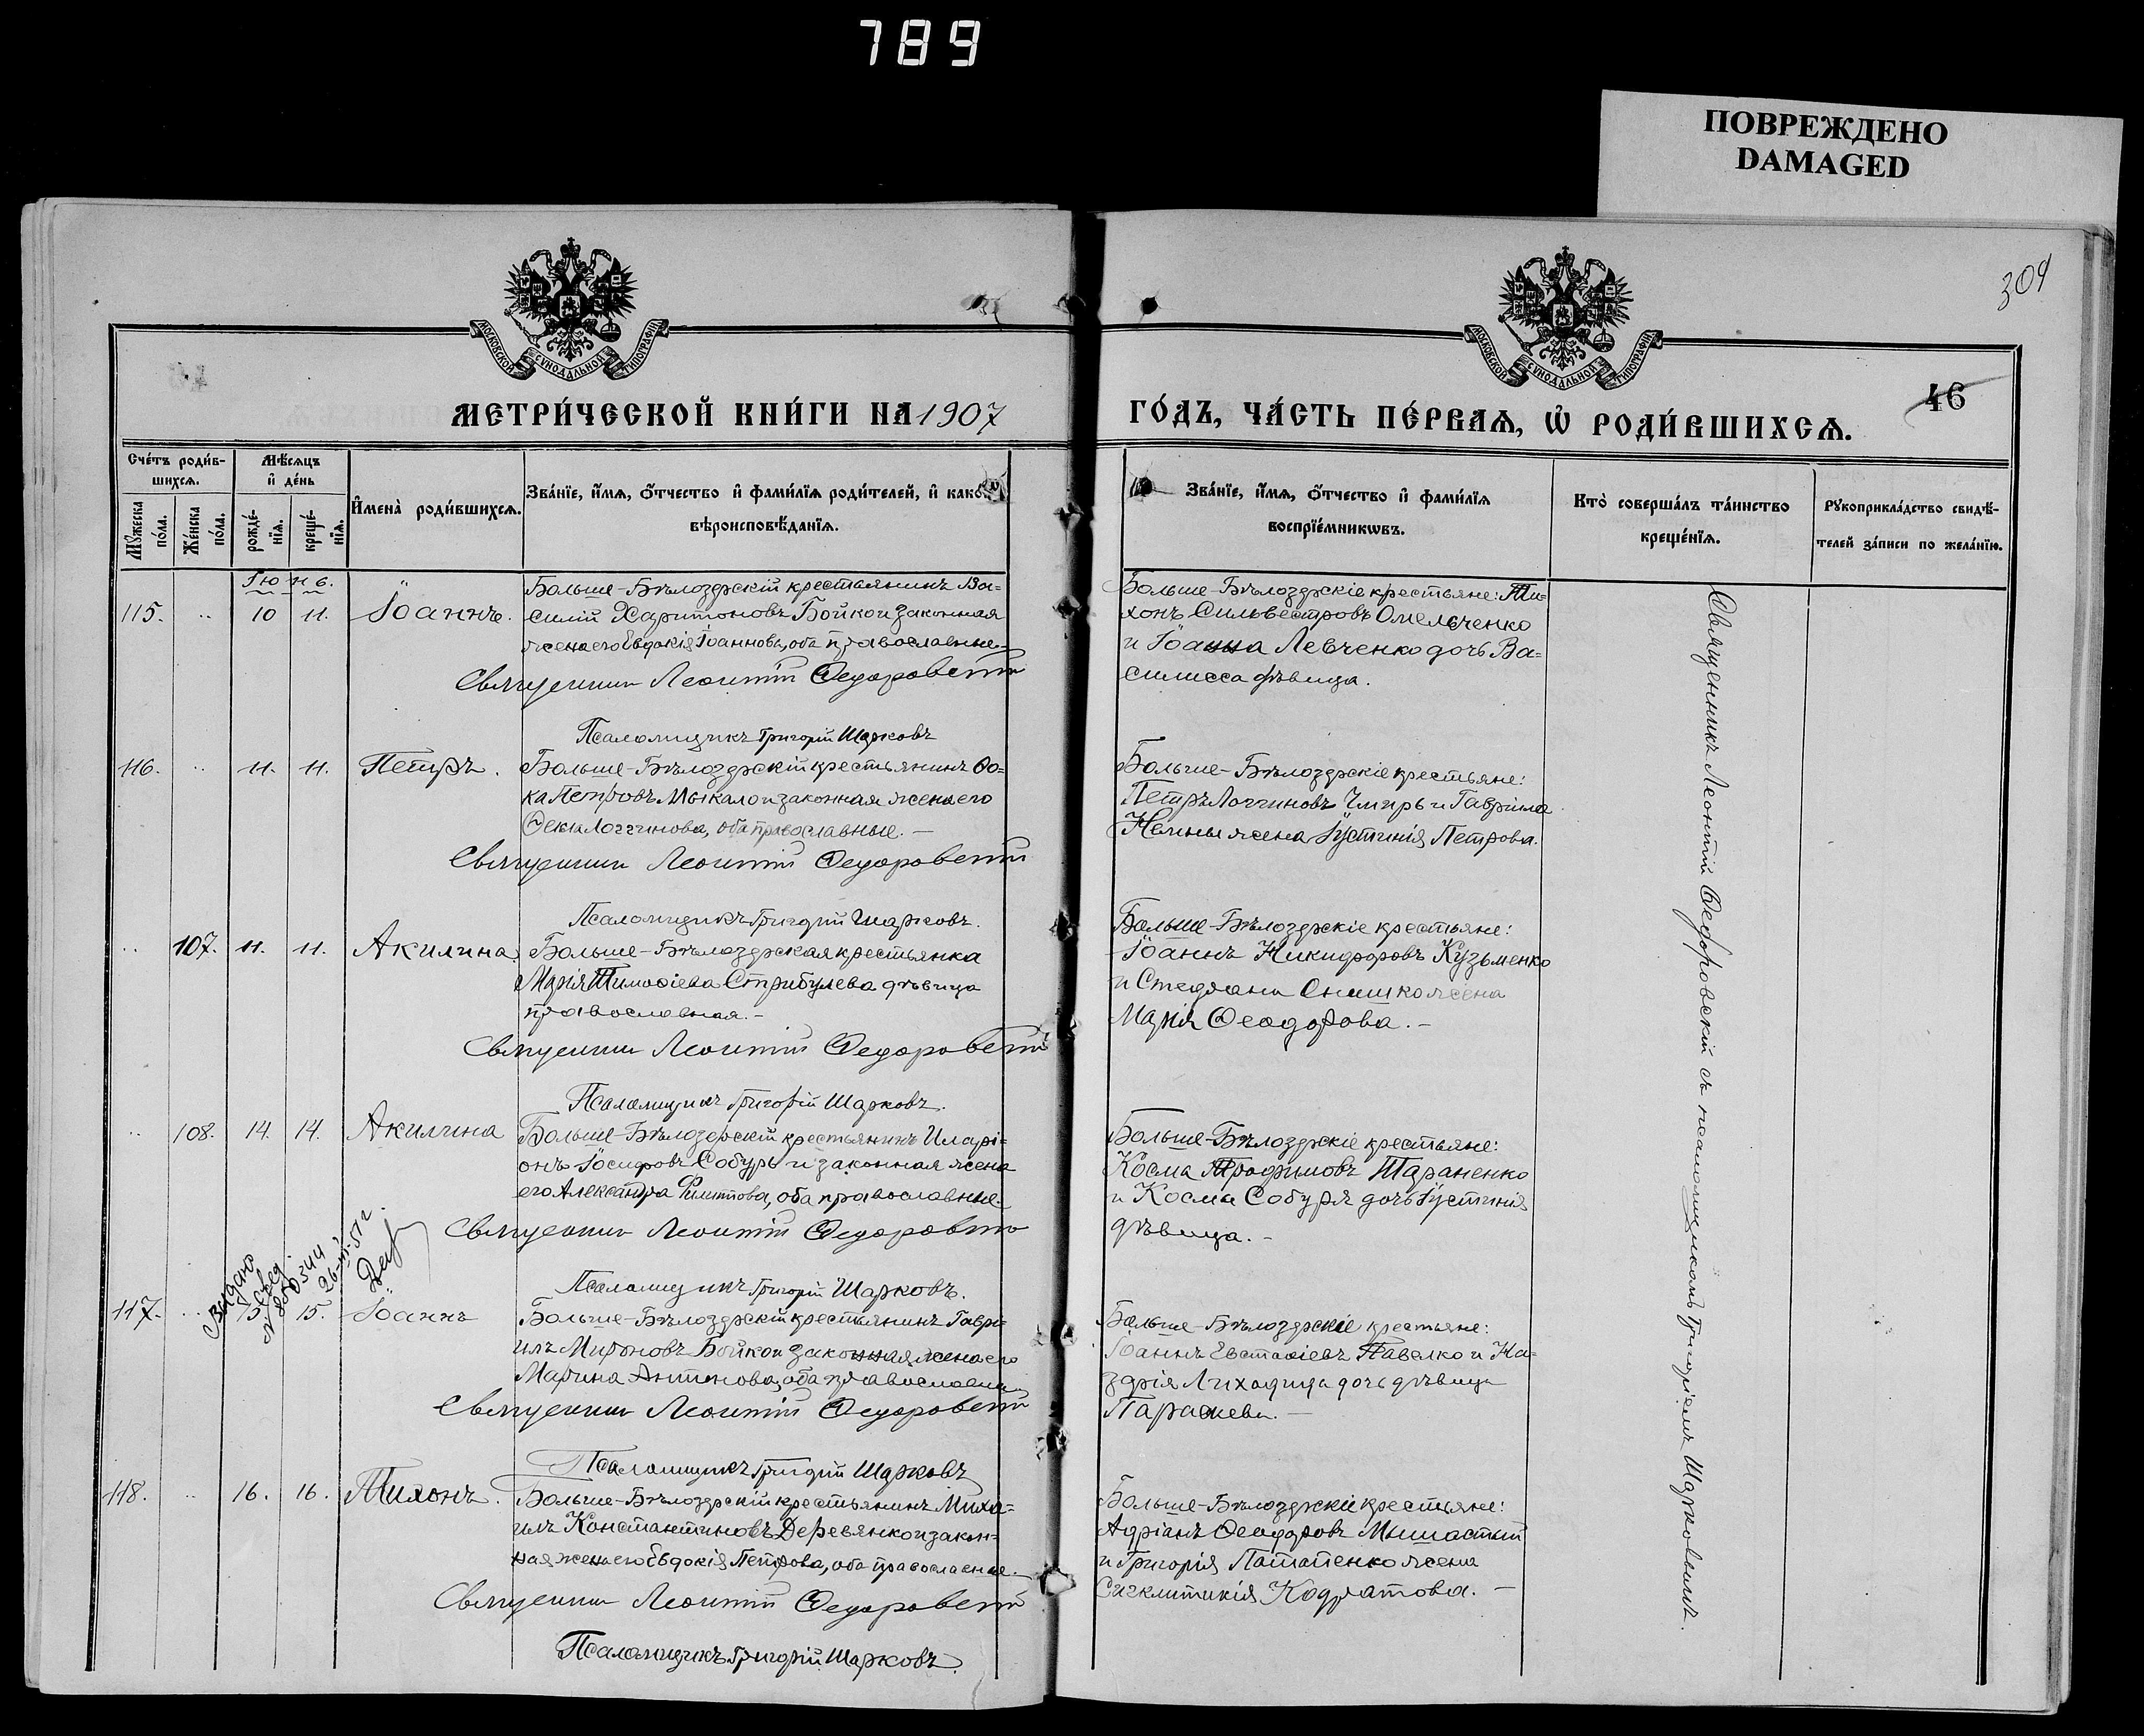 789
ПОВРЕЖДЕНО
DAMAGED
304
46
МОСКОВСКОЙ СѴНОДАЛЬНОЙ ТИПОГРАФІИ
МОСКОВСКОЙ СѴНОДАЛЬНОЙ ТИПОГРАФІИ
МЕТРИ́ЧЕСКОЙ КНИ́ГИ НА 1907
ГО́ДЪ, ЧА́СТЬ ПЕ́РВАѦ, Ѡ҆ РОДИ́ВШИХСѦ.
Сче́тъ роди́в-
шихсѧ.
Мꙋ́жеска
по́ла.
Же́нска
по́ла.
Мѣ́сѧцъ
и҆ де́нь
рожде́-
нїѧ.
креще́-
нїѧ.
И҆мена̀ роди́вшихсѧ.
Зва́нїе, и҆́мѧ, ѻ҆́тчество и҆ фами́лїѧ роди́телей, и҆ како́гѡ
вѣроисповѣ́данїѧ.
Зва́нїе, и҆́мѧ, ѻ҆́тчество и҆ фами́лїѧ
воспрїе́мникѡвъ.
Кто̀ соверша́лъ та́инство
креще́нїѧ.
Рꙋкоприкла́дство свидѣ́-
телей за́писи по жела́нїю.
Іюнь.
115. .. 10 11. Іоаннъ.
Больше-Бѣлоздрскій крестьянинъ Ва-
силій Харитоновъ Бойко и законная
жена его Евдокія Іоаннова, оба православные.
Священникъ Леонтій Ѳедоровскій
Псаломщикъ Григорій Шарковъ
Больше-Бѣлоздрскіе крестьяне: Ти-
хонъ Сильвестровъ Омельченко
и Іоанна Левченко дочь Ва-
силисса дѣвица.
116. .. 11. 11. Петръ.
Больше-Бѣлоздрскій крестьянинъ Ѳо-
ка Петровъ Мыкало и законная жена его
Ѳекла Логгинова, оба православные. —
Священникъ Леонтій Ѳедоровскій
Псаломщикъ Григорій Шарковъ.
Больше-Бѣлоздрскіе крестьяне:
Петръ Логгиновъ Чмиръ и Гавріила
жена Іустинія Петрова.
.. 107. 11. 11. Акилина
Больше-Бѣлоздрская крестьянка
Марія Тимоѳіева Стрибулева дѣвица
православная. —
Священникъ Леонтій Ѳедоровскій
Псаломщикъ Григорій Шарковъ.
Больше-Бѣлоздрскіе крестьяне:
Іоаннъ Никифоровъ Кузьменко
и Стефана Онишко жена
Марія Ѳеодорова. —
.. 108. 14. 14. Акилина
Больше-Бѣлозерскій крестьянинъ Иларі-
онъ Іосифовъ Собурь и законная жена
его Александра Филиппова, оба православные.
Священникъ Леонтій Ѳедоровскій
Псаломщикъ Григорій Шарковъ.
Больше-Бѣлоздрскіе крестьяне:
Косма Трофимовъ Тараненко
и Косма Собуря дочь Іустинія
дѣвица. —
Видано
свед.
26-III-51 г.
117. .. 15 15. Іоаннъ
Больше-Бѣлоздрскій крестьянинъ Гаврі-
илъ Мироновъ Бойко и законная жена его
Марина Антонова, оба православные
Священникъ Леонтій Ѳедоровскій
Псаломщикъ Григорій Шарковъ
Больше-Бѣлоздрскіе крестьяне:
Іоаннъ Евстаѳіевъ Павелко и На-
здрія Лиходида дочь дѣвица
Параскева. —
118. .. 16. 16. Тихонъ.
Больше-Бѣлоздрскій крестьянинъ Миха-
илъ Константиновъ Деревянко и закон-
ная жена его Евдокія Петрова, оба православные.
Священникъ Леонтій Ѳедоровскій
Псаломщикъ Григорій Шарковъ.
Больше-Бѣлоздрскіе крестьяне:
Адріанъ Ѳеодоровъ Мышастый
и Григорія Потапенко жена
Сигклитикія Кодратова. —
Священникъ Леонтій Ѳедоровскій съ псаломщикомъ Григоріемъ Шарковымъ.